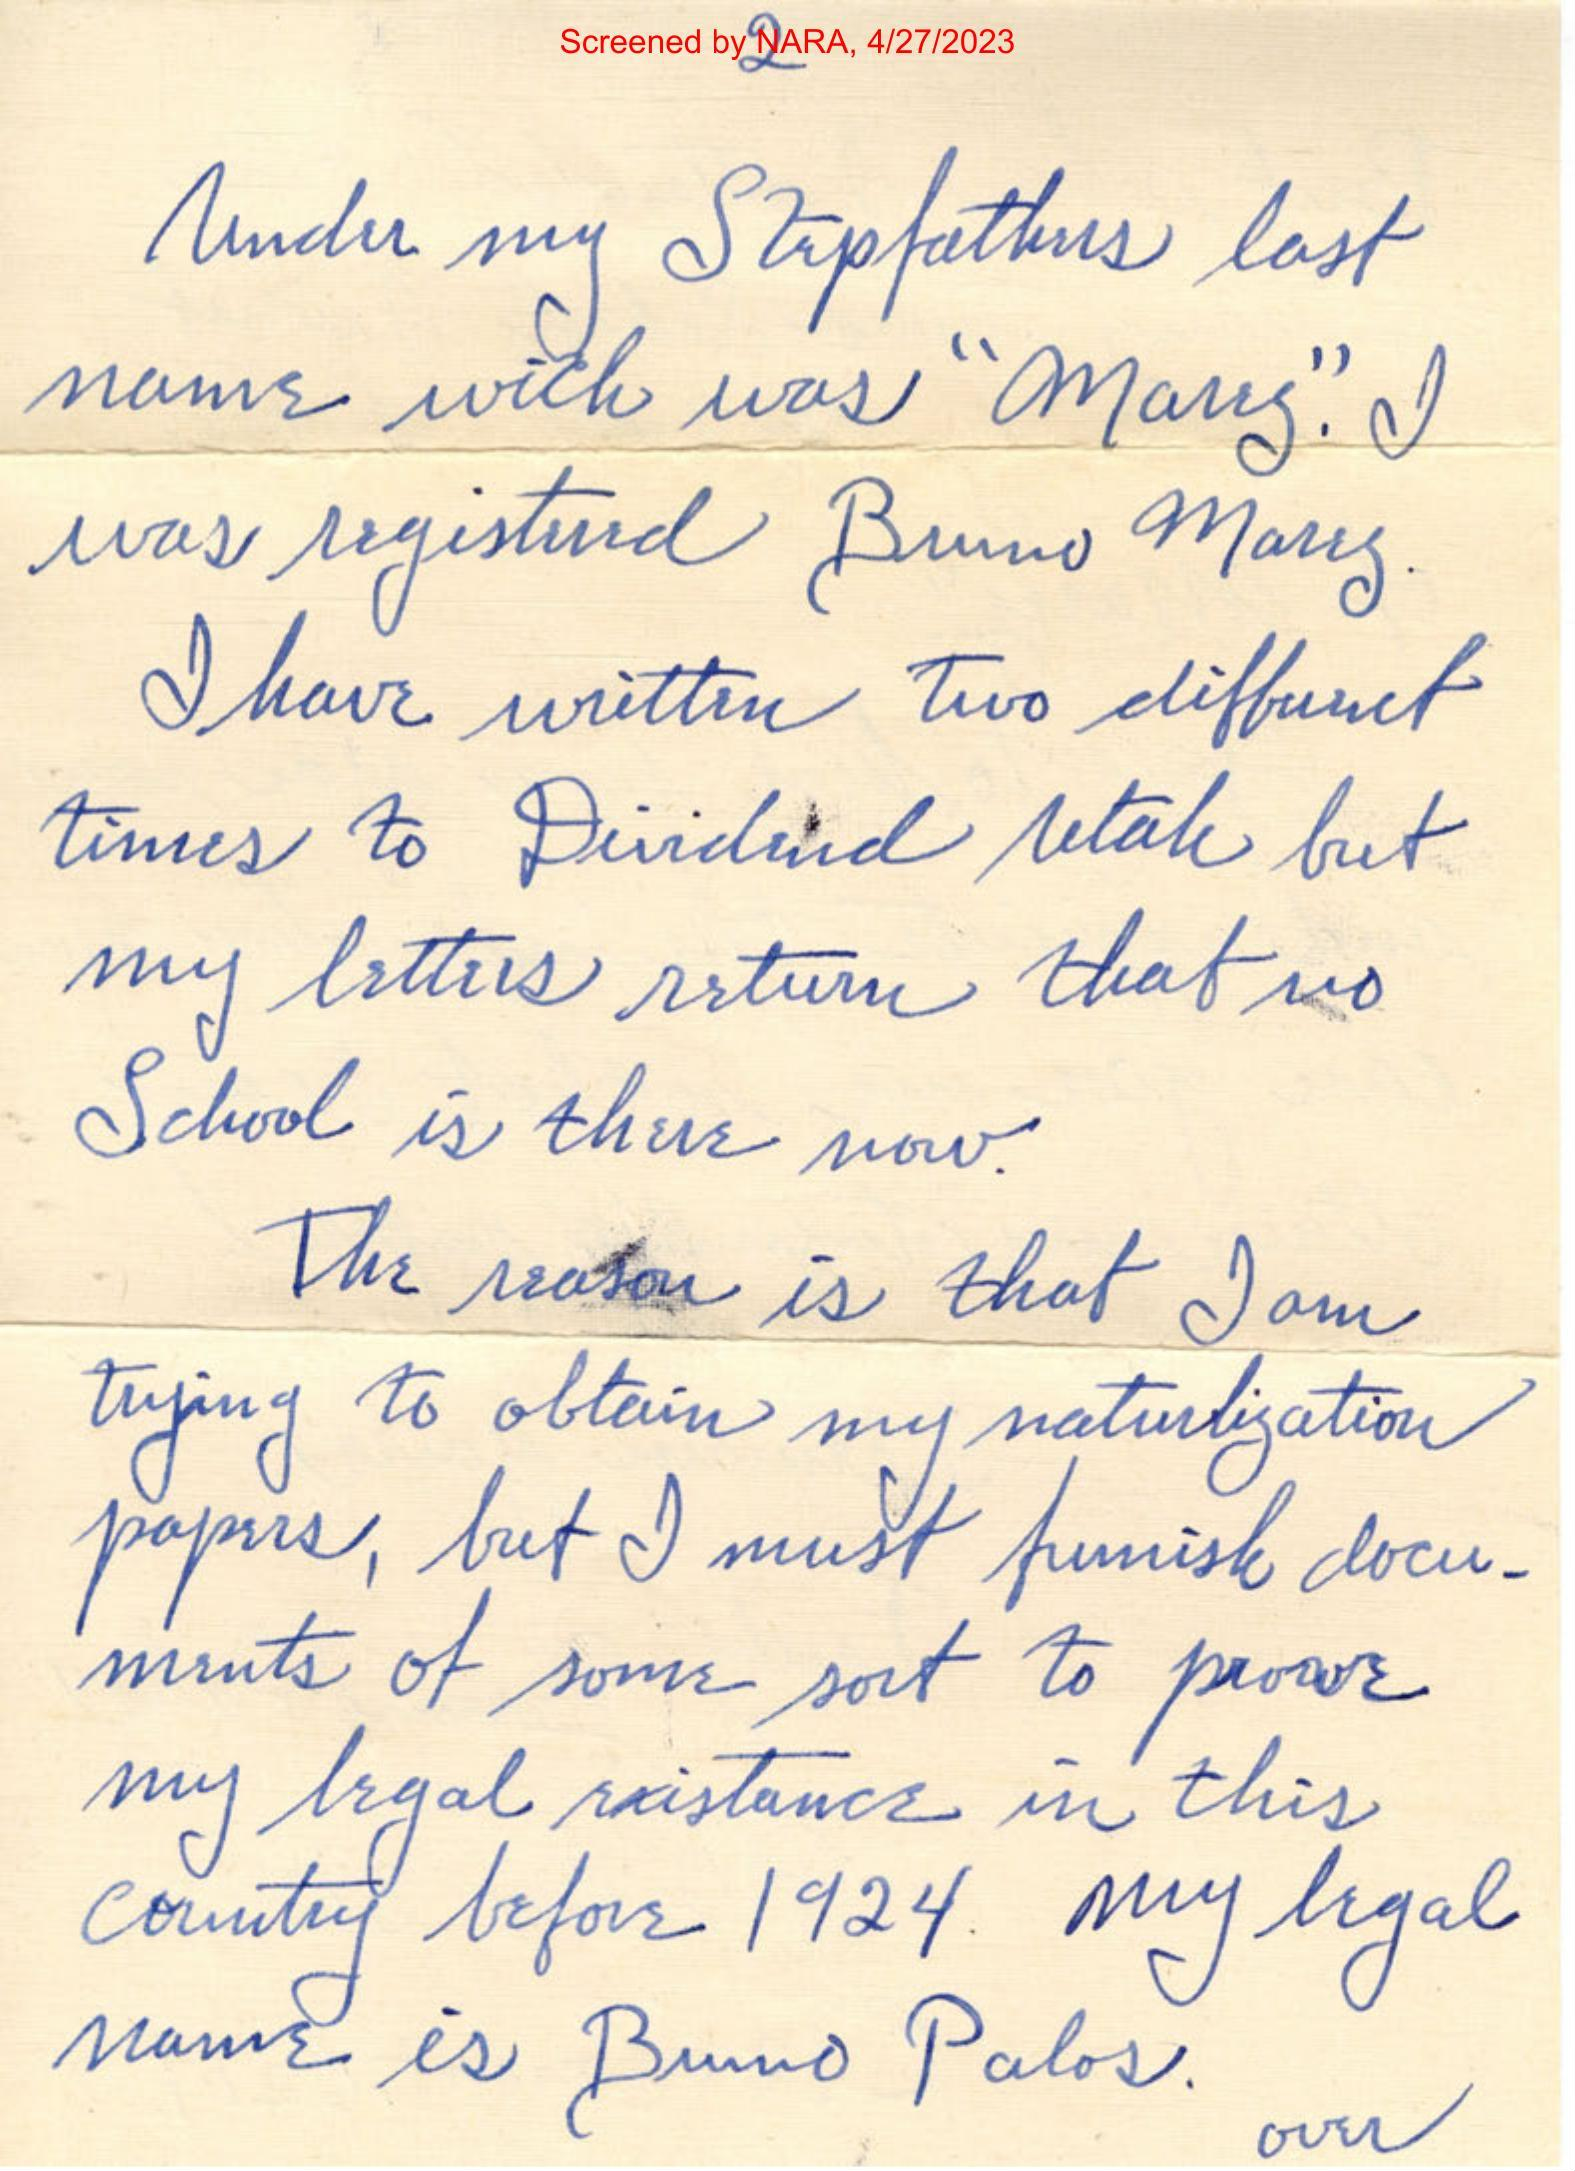 Screened by NARA, 4/27/2023
2
Under my Stepfathers last
name wich was "Marez". I
was registered Bruno Marez.
I have written two differnet
times to Dividend Utah but
my letters return that no
School is there now.
The reason is that I am
trying to obtain my naturlization
papers, but I must furnish docu-
ments of some sort to prove
my legal existance in this
country before 1924. My legal
name is Bruno Palos.
over